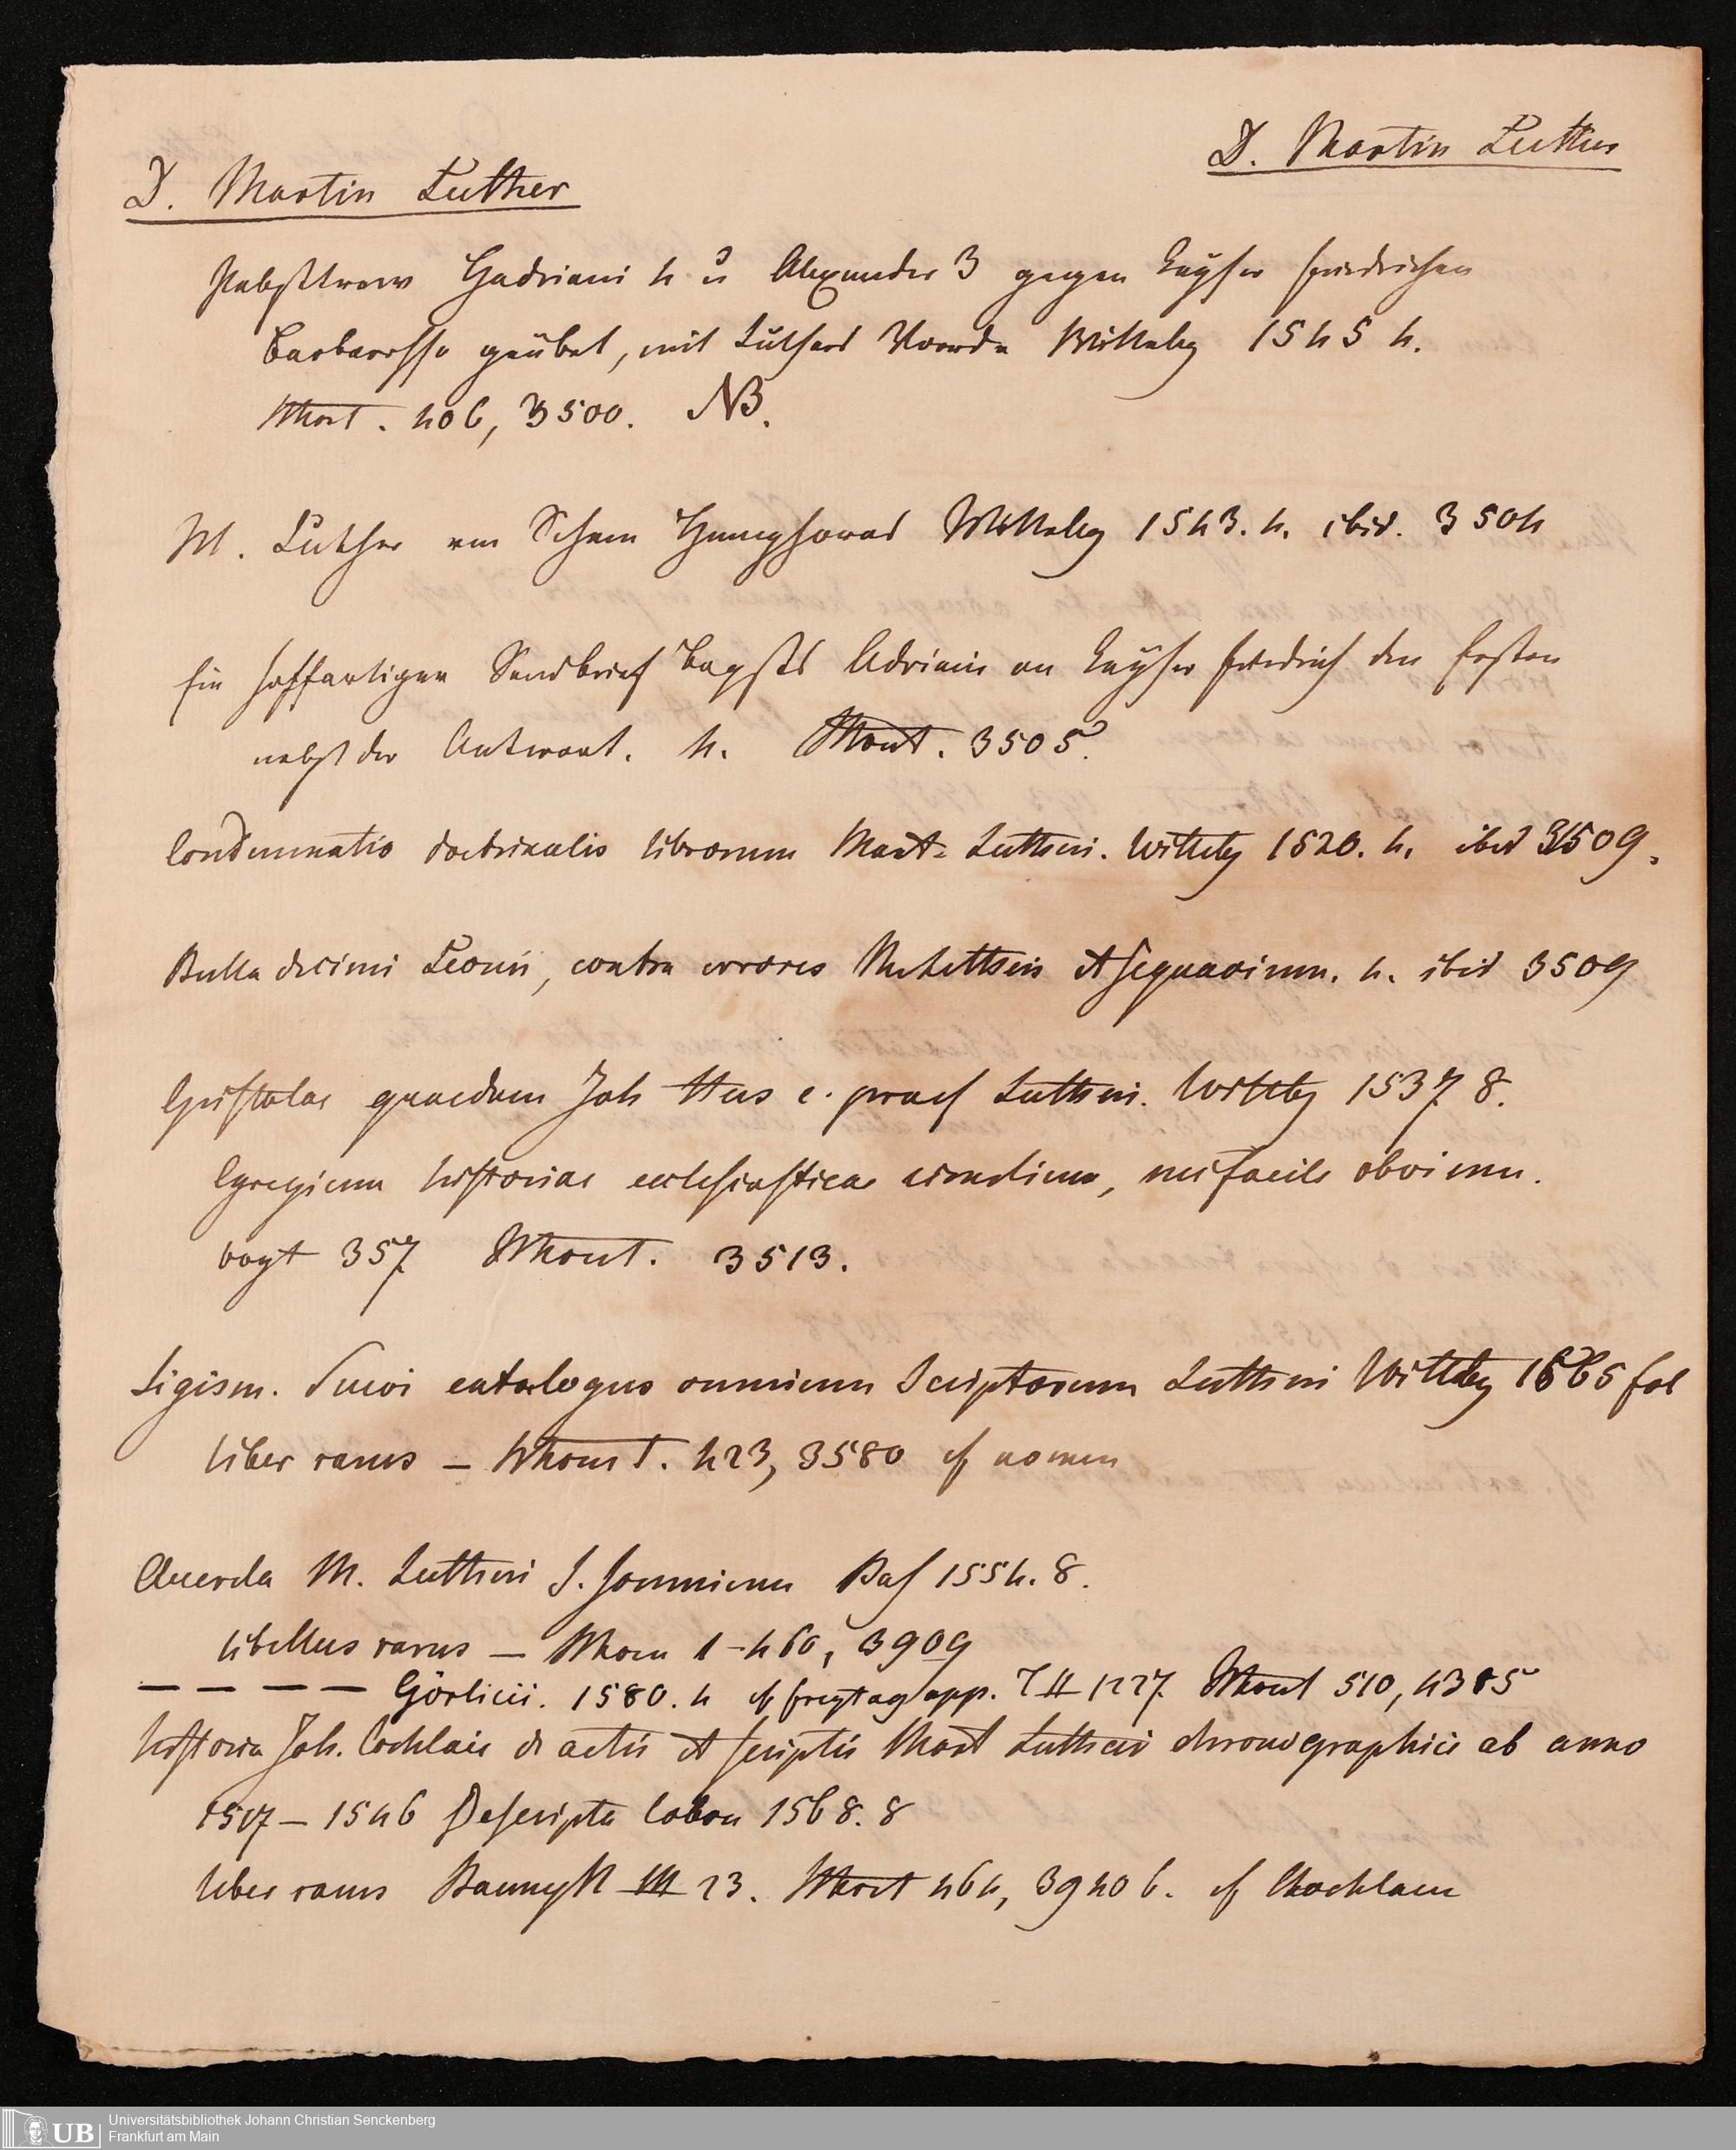 D. Martin Luther
D. Martin Luther
Pabsttrew Hadriani 4 u Alexander 3 gegen Keyser Friedrichen
Barbarossa geübet, mit Luthers Vorrede Wittebg 1545 4.
Thort. 406, 3500. NB.
M. Luther vom Schem Hamphoras Wittebg 1543. 4. ibid. 3504
Ein hoffartiger Sendbrief Bapsts Adriani an Keyser Friedrich den Ersten
nebst der Antwort. 4. 3505.
Condemnatio doctrinalis librorum Mart. Lutheri. Wittebg 1520. 4. ibid 3509.
Bulla decimi Leonis, contra errores M Lutheri et sequacium. 4. ibid 3509
Epistolae quaedam Joh Hus c. praef Lutheri. Wittebg 1537. 8.
Egregium historiae ecclesiasticae, nec facile obvium.
Vogt 357 3513.
Sigism. Suevi catalogus omnium Scriptorum Lutheri Wittebg 1565 fol
liber rarus — 423, 3580 cf nomen
M. Lutheri S. somnium Bas 1554. 8.
libellus rarus — 1-460, 3909
— — — — Görlicii. 1580. 4 cf freytag app. T II 1227. 510, 4385
historia Joh. Cochlaei de actis et scriptis Mart Lutheri chronographice ab anno
1517 — 1546 Descripta Colon 1568. 8
liber rarus III 23. 464, 3940 b. cf Chochlaeum
UB
Universitätsbibliothek Johann Christian Senckenberg
Frankfurt am Main